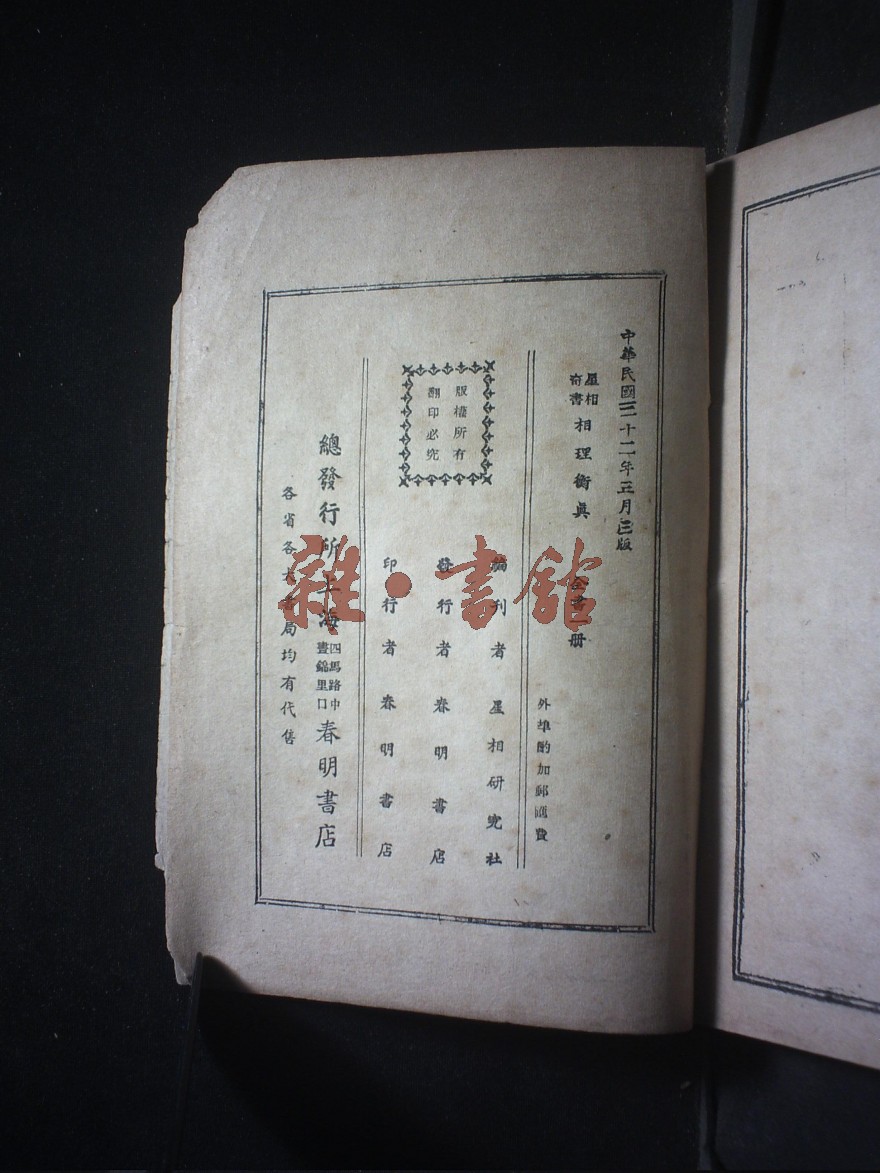 中華民國三十二年三月三版
星相奇書
相理衡眞
全書一冊
外埠酌加郵匯費
編刊者 星相研究社
發行者 春明書店
印行者 春明書店
版權所有
翻印必究
總發行所上海
四馬路中
晝錦里口
春明書店
各省各大書局均有代售
雜·書館